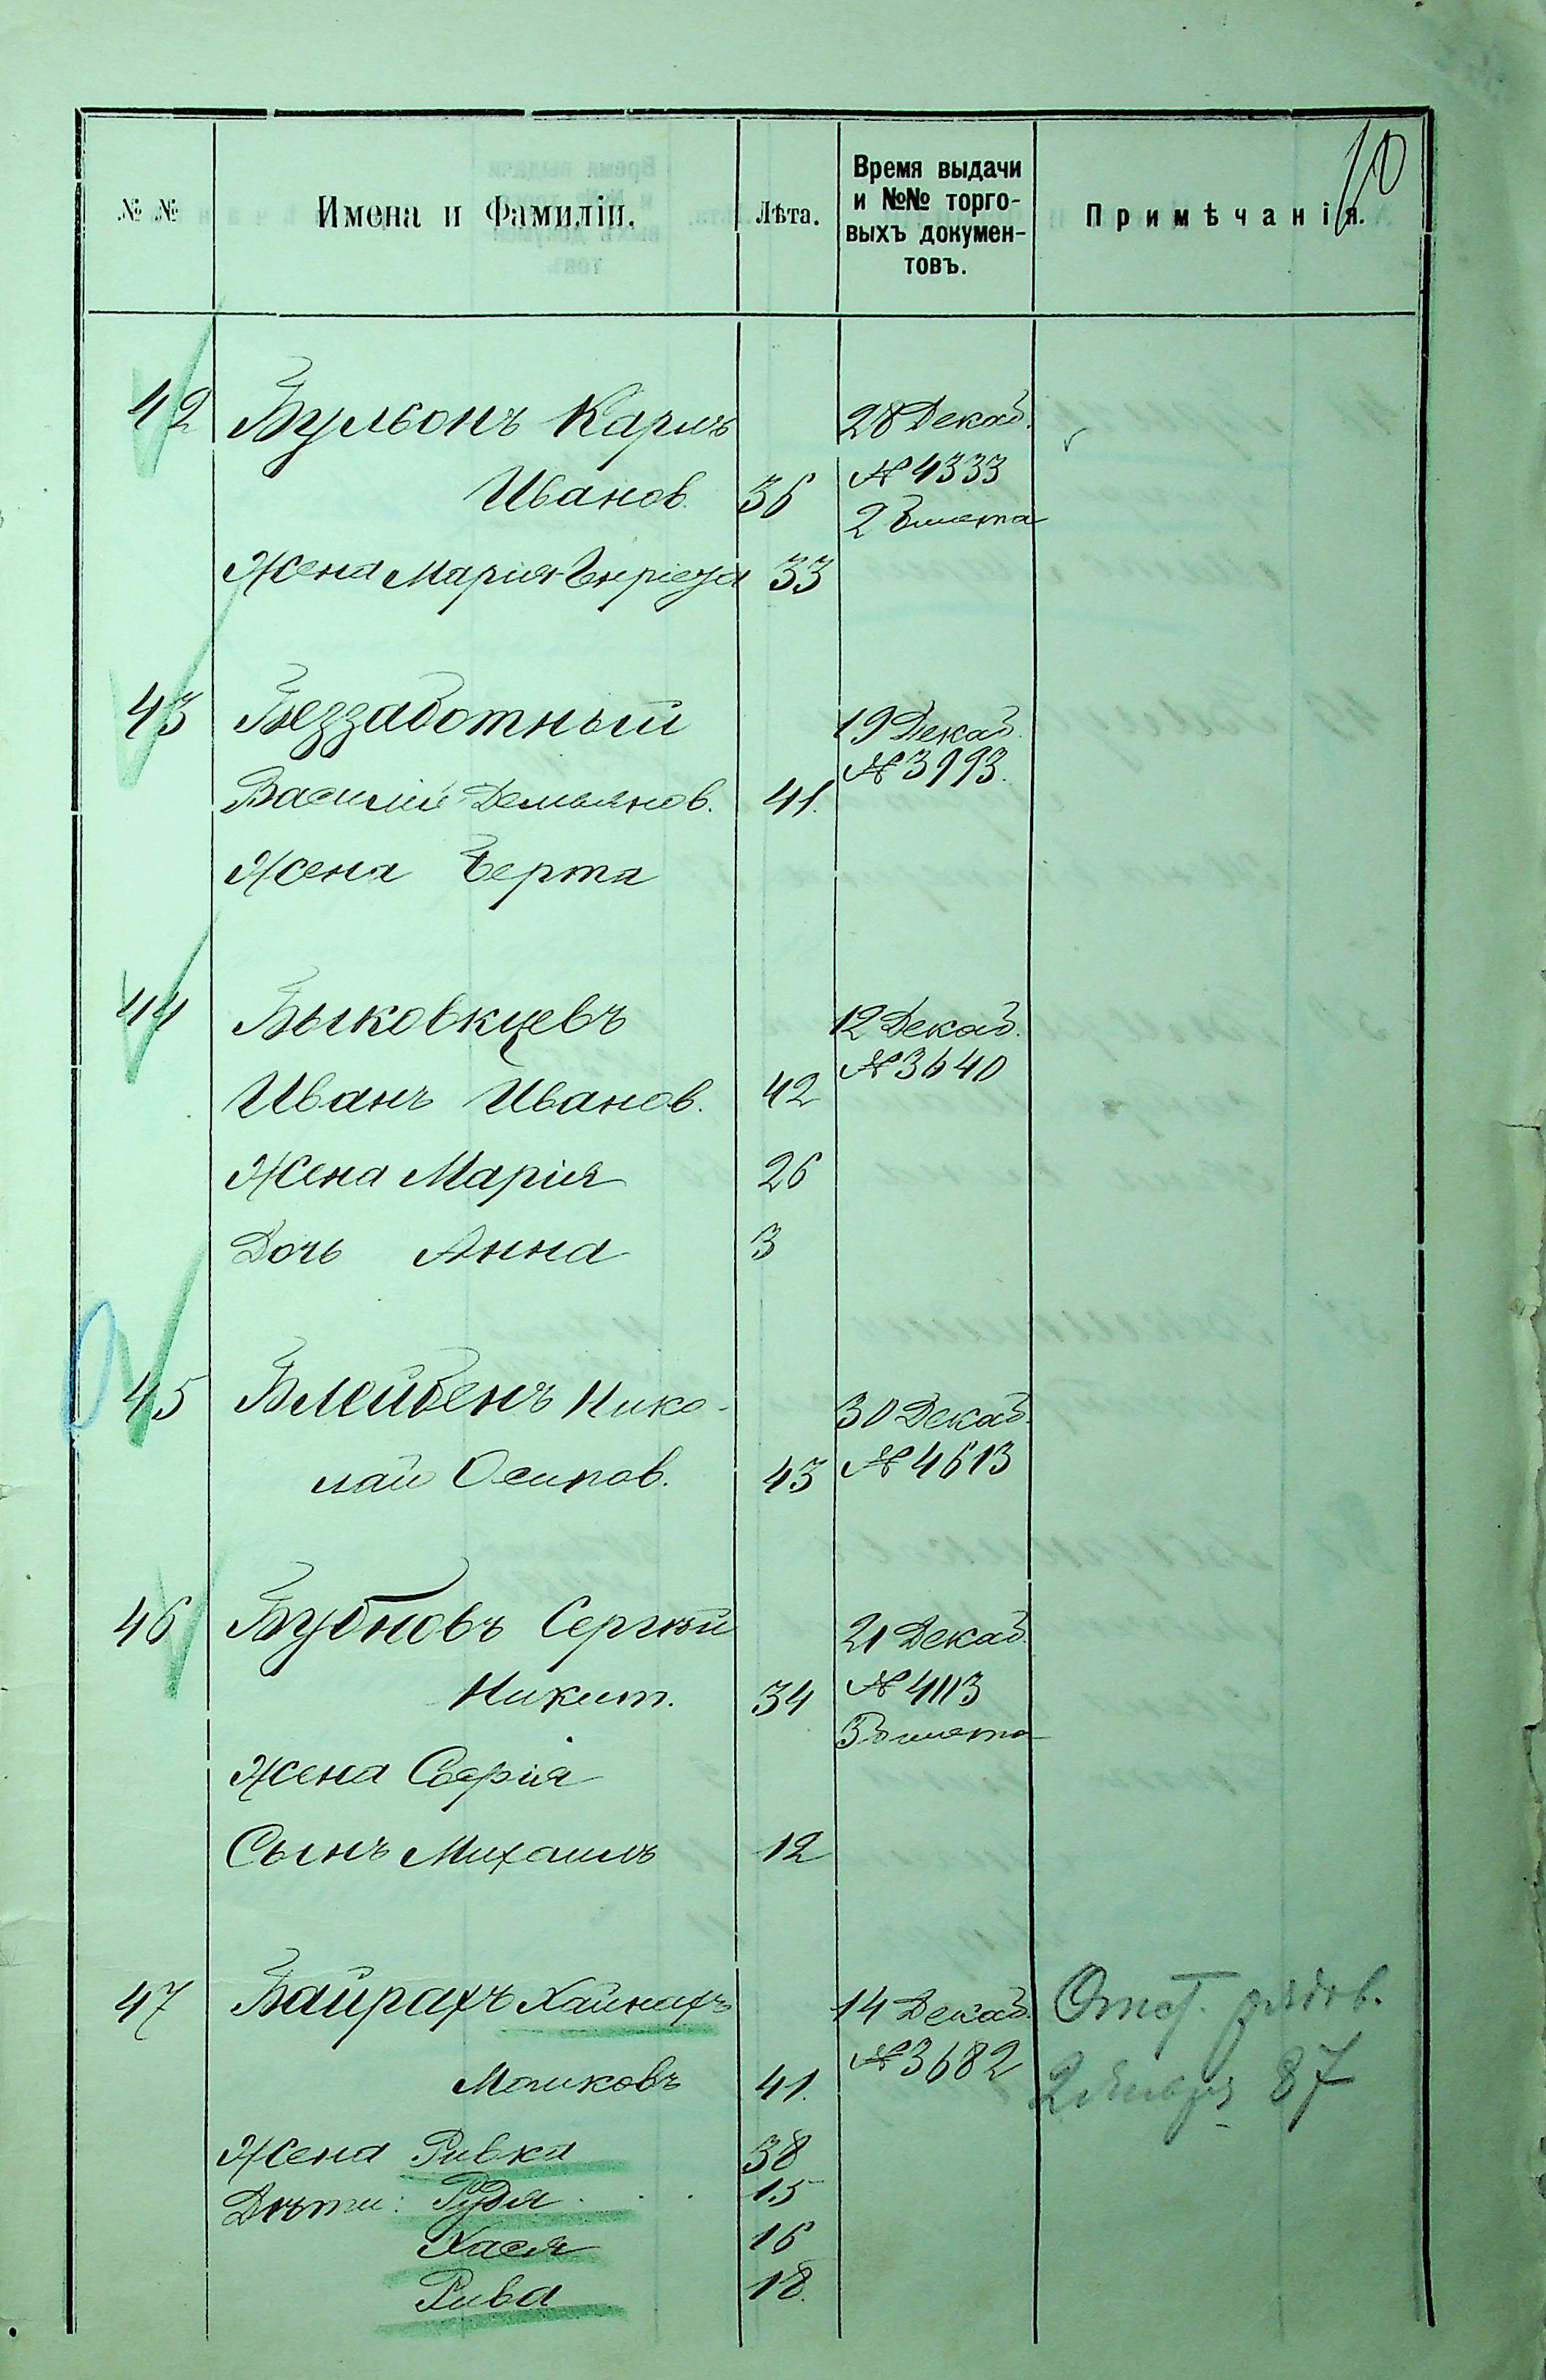 10
№ № Имена и Фамиліи. Лѣта. Время выдачи и №№ торговыхъ документовъ. Примѣчанія.
42 Бульонъ Карлъ 28 Декаб.
Иванов. 36 № 4333
2 билета
Жена Марія-Генріета 33
43 Беззаботный 19 Декаб.
№ 3993.
Василій Демьянов. 41.
Жена Берта
44 Быковкцевъ 12 Декаб.
№ 3640
Иванъ Иванов. 42
Жена Марія 26
Дочь Анна 3
45 Блейбенъ Нико- 30 Декаб.
лай Осипов. 43 № 4613
46 Бубновъ Сергѣй 21 Декаб.
Никит. 34 № 4113
3 билета
Жена Софія
Сынъ Михаилъ 12
47 Байрахъ Хаимахъ 14 Декаб. Отст. рядов.
Мошковъ 41. № 3682 2 Января 87
Жена Ривка 38
Дѣти: Рудя . . . 15
Хася 16
Рива 18.